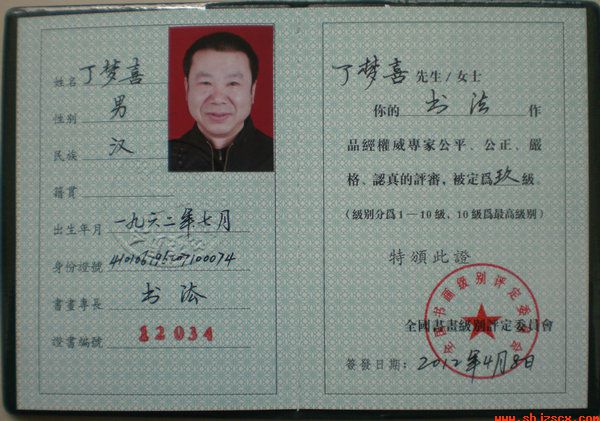 姓名 丁梦喜
性别 男
民族 汉
籍貫
出生年月 一九六二年七月
身份證號
書畫專長 书法
證書編號 12034
丁梦喜 先生/女士
你的 书法 作
品經權威專家公平、公正、嚴
格、認真的評審，被定爲玖級。
（級别分爲1—10級，10級爲最高級别）
特頒此證
全國書畫級别評定委員會
全国书画级别评定委员会
簽發日期：2012年4月8日
www.shizscx.com